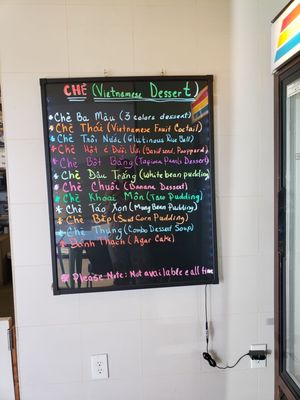 CHÈ (Vietnamese Dessert)
* Chè Ba Màu (3 colors dessert)
* Chè Thái (Vietnamese Fruit Coctail)
* Chè Trôi Nước (Glutinous Rice Ball)
* Chè Hột É Đười Ươi
* Chè Bột Báng (Tapioca Pearls Dessert)
* Chè Đậu Trắng (White bean pudding)
* Chè Chuối (Banana Dessert)
* Chè Khoai Môn (Taro Pudding)
* Chè Táo Xọn (Mung Bean Pudding)
* Chè Bắp (Sweet Corn Pudding)
* Chè Thưng (Combo Dessert Soup)
* Bánh Thạch (Agar Cake)
* Please Note: Not available all time